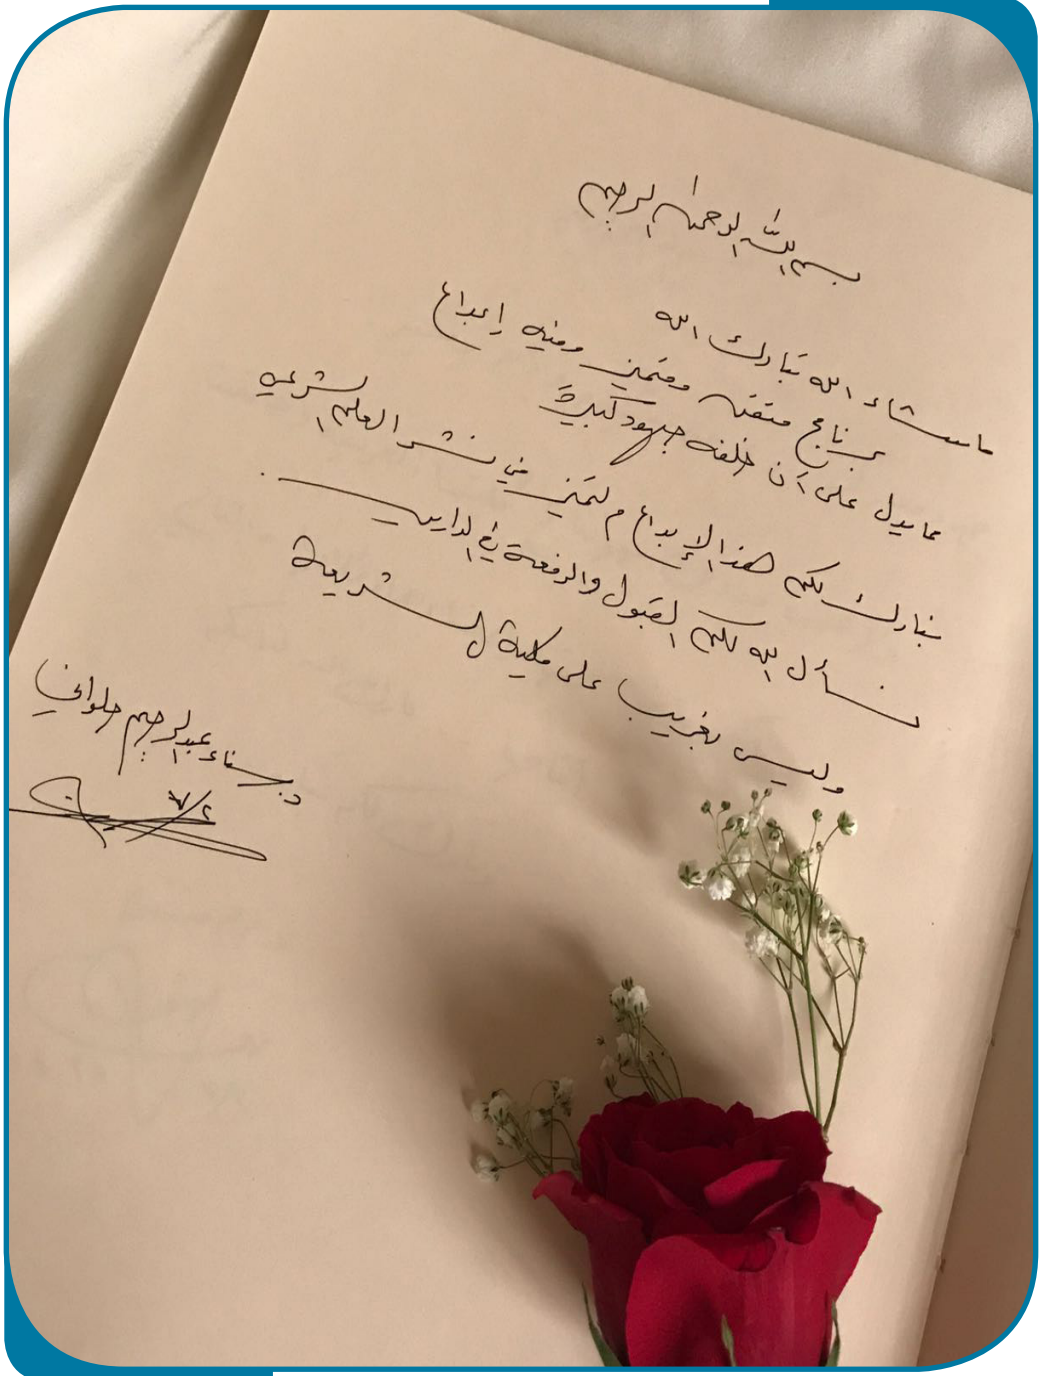 بسم الله الرحمن الرحيم
ماشاء الله تبارك الله
برنامج متقن ومتميز وفيه إبداع
مما يدل على أن خلفه جهود كبيرة
نبارك لكم هذا الإبداع المتميز في نشر العلم الشرعي
نسأل الله لكم القبول والرفعة في الدارين .
وليس بغريب على كلية الشريعة
د. سناء عبدالرحيم حلواني